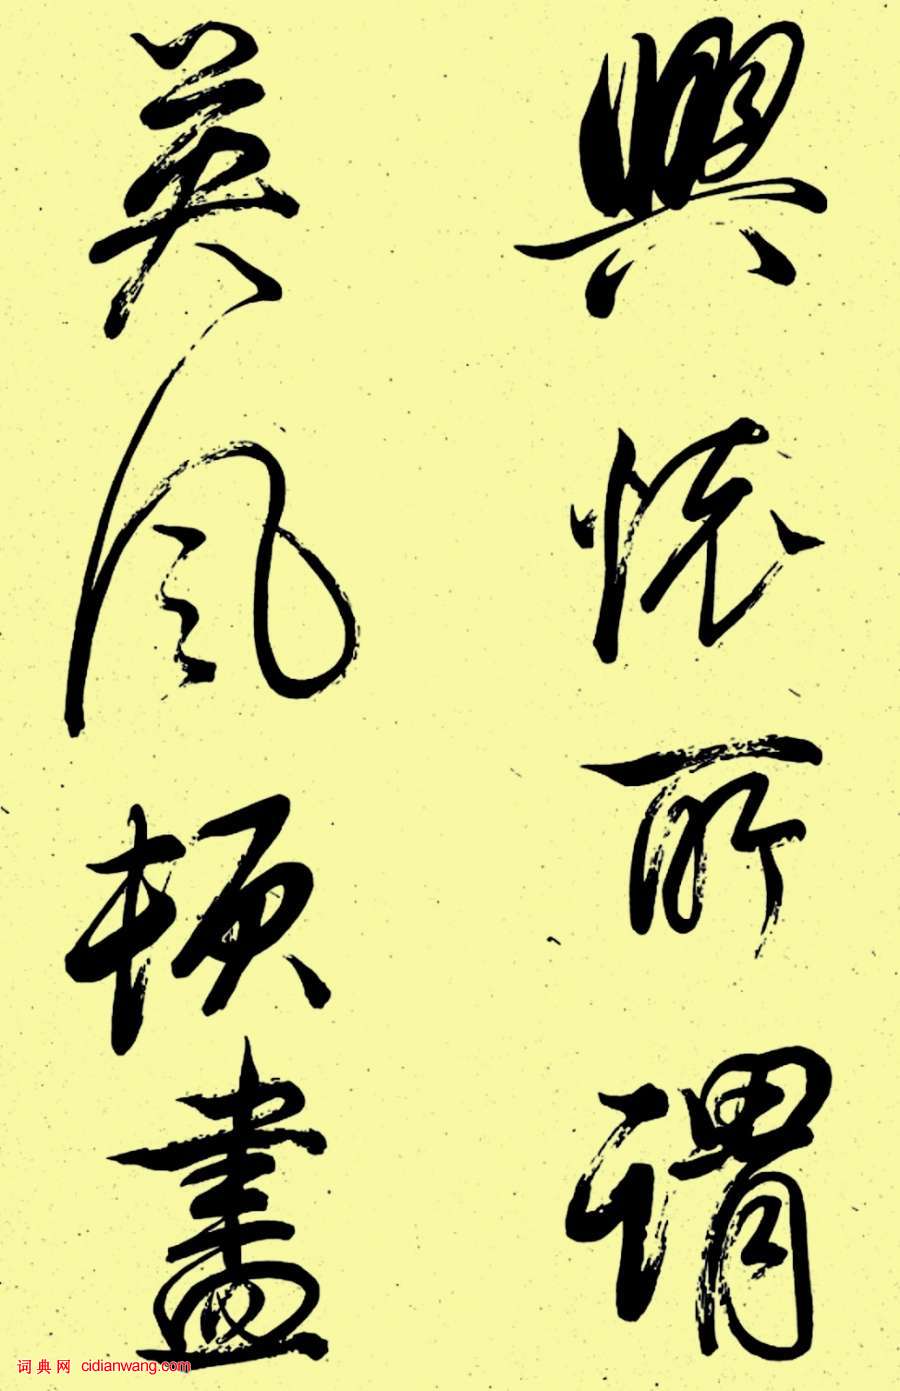 興懷所謂
英風頓盡
词典网 cidianwang.com